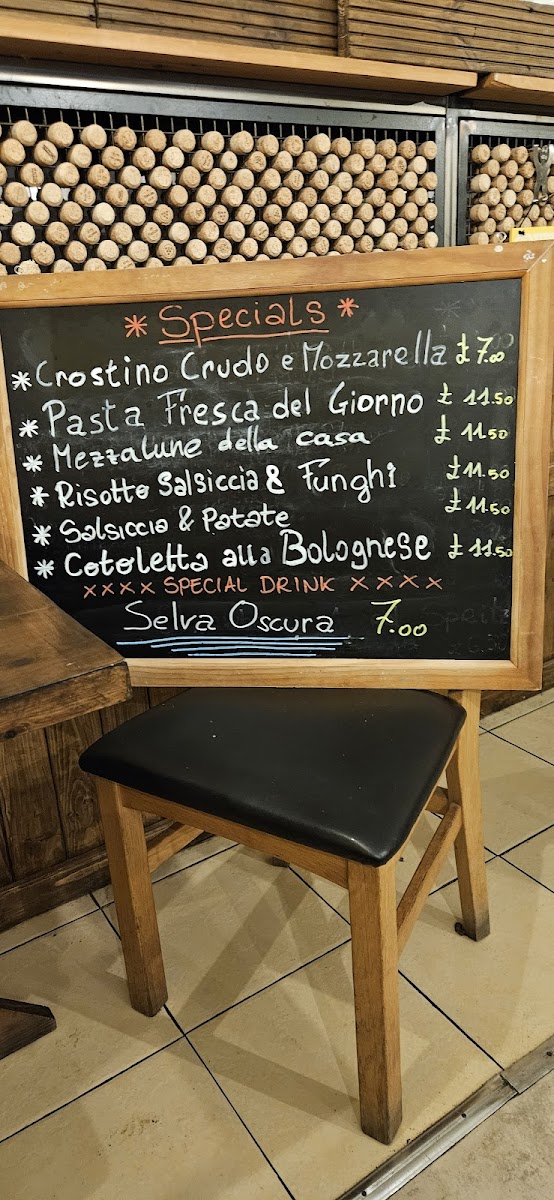 * Specials *
* Crostino Crudo e Mozzarella £ 7.00
* Pasta Fresca del Giorno £ 11.50
* Mezzalune della casa £ 11.50
* Risotto Salsiccia & Funghi £ 11.50
* Salsiccia & Patate £ 11.50
* Cotoletta alla Bolognese £ 11.50
xxxx SPECIAL DRINK xxxx
Selva Oscura 7.00